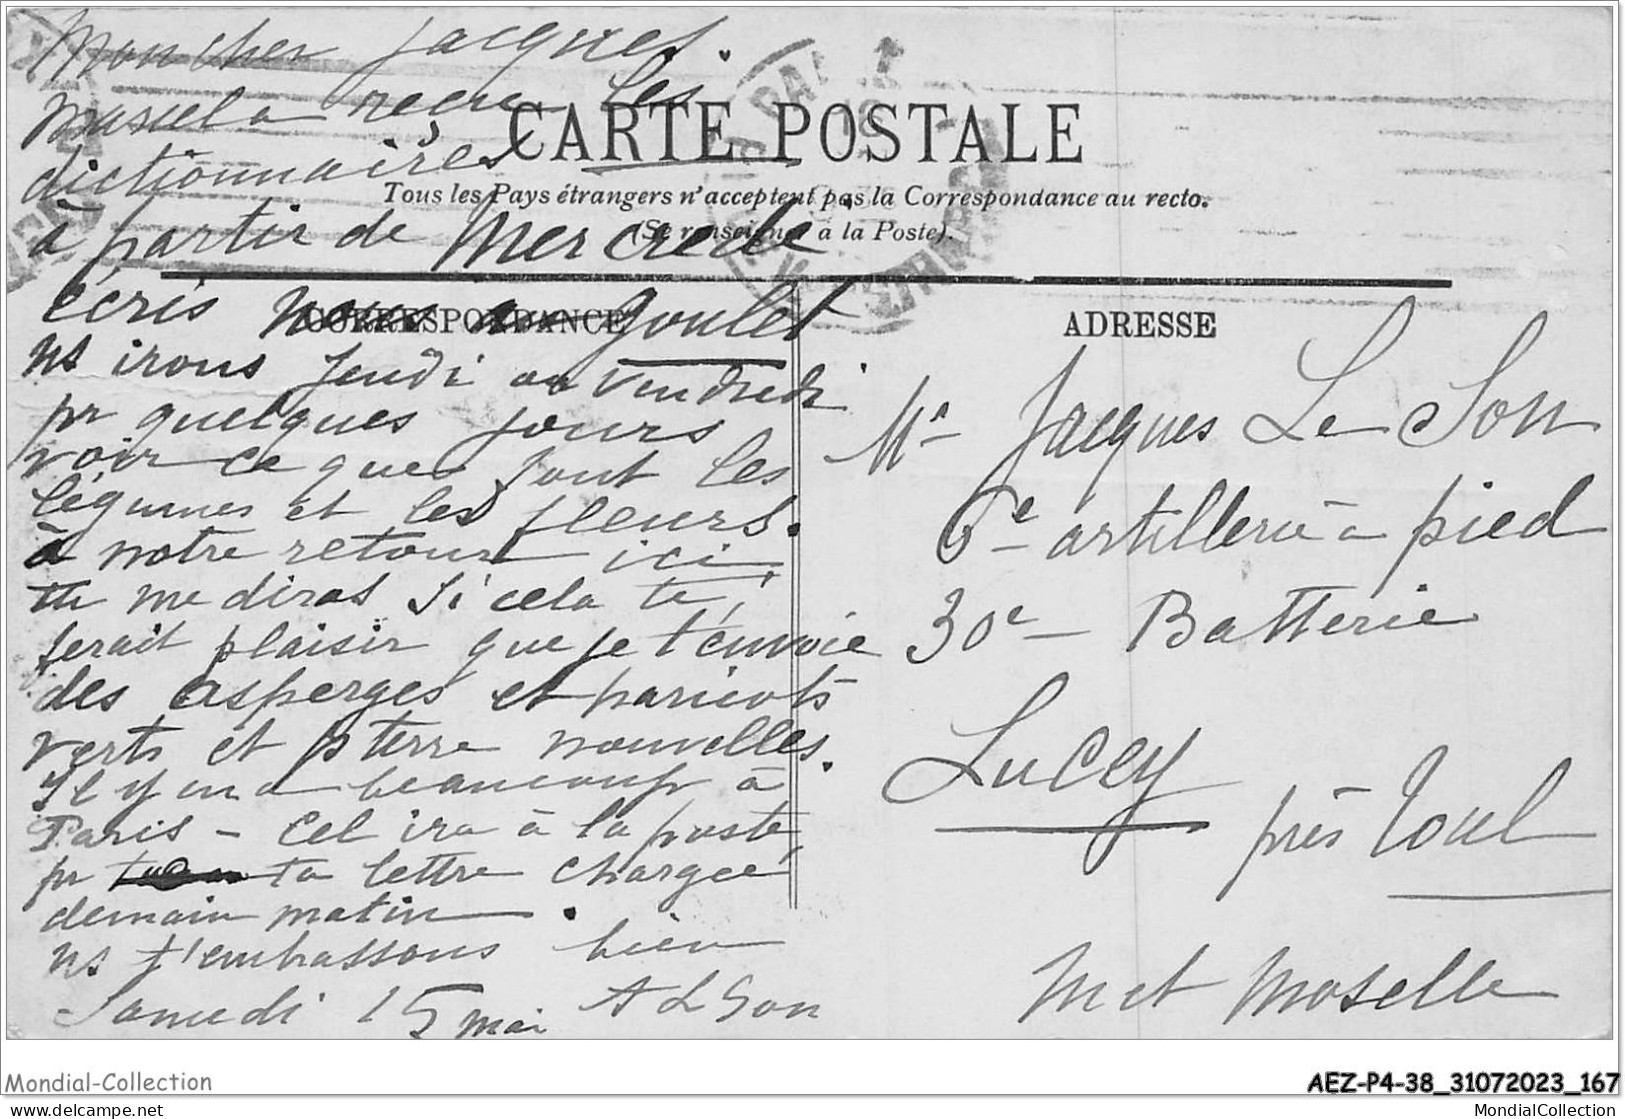 Mon cher Jacques.
Marcel a reçu les
dictionnaires
à partir de Mercredi
écris nous au Goulet
ns irons Jeudi ou Vendredi
pr quelques jours
voir ce que font les
légumes et les fleurs.
à notre retour ici,
tu me diras si cela te
ferait plaisir que je t'envoie
des asperges et haricots
verts et p terre nouvelles.
Il y en a beaucoup à
Paris - Cel ira à la poste,
pr ta lettre chargée
demain matin.
ns t'embrassons bien
Samedi 15 mai A L Son
CARTE POSTALE
Tous les Pays étrangers n'acceptent pas la Correspondance au recto.
(Se renseigner à la Poste).
CORRESPONDANCE
ADRESSE
Mr Jacques Le Son
6e artillerie à pied
30e Batterie
Lucey
près Toul
Met Moselle
Mondial-Collection
AEZ-P4-38_31072023_167
www.delcampe.net
MondialCollection